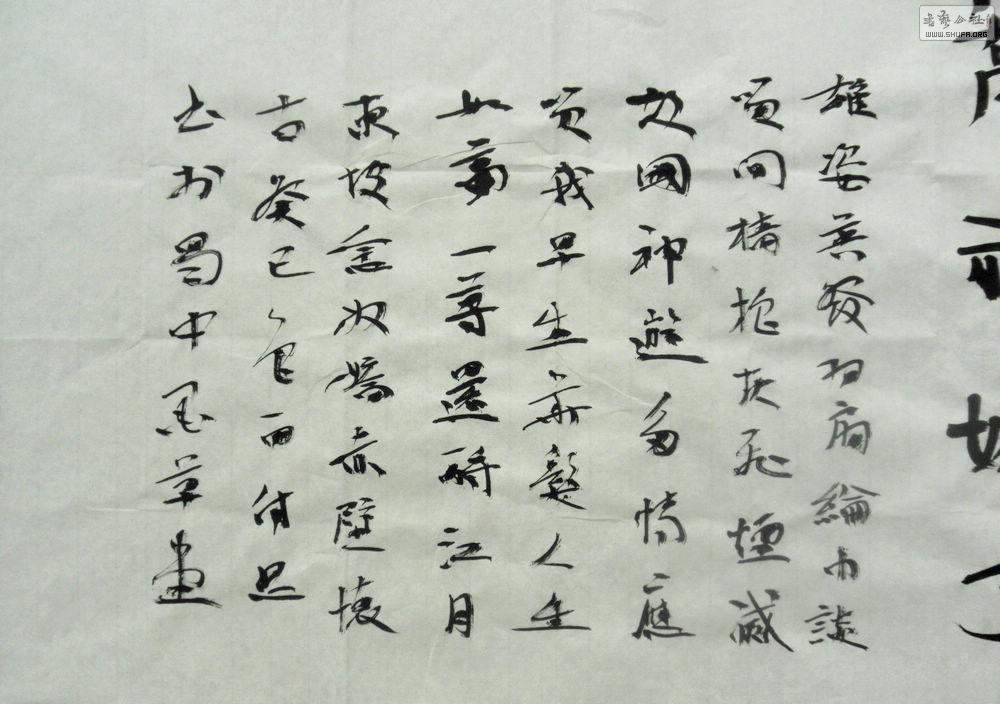 書藝公社
WWW.SHUFA.ORG
雄姿英發羽扇綸巾談
笑間檣櫓灰飛煙滅
故國神遊多情應
笑我早生華髮人生
如夢一尊還酹江月
東坡念奴嬌赤壁懷
古癸巳
书於蜀中墨草堂